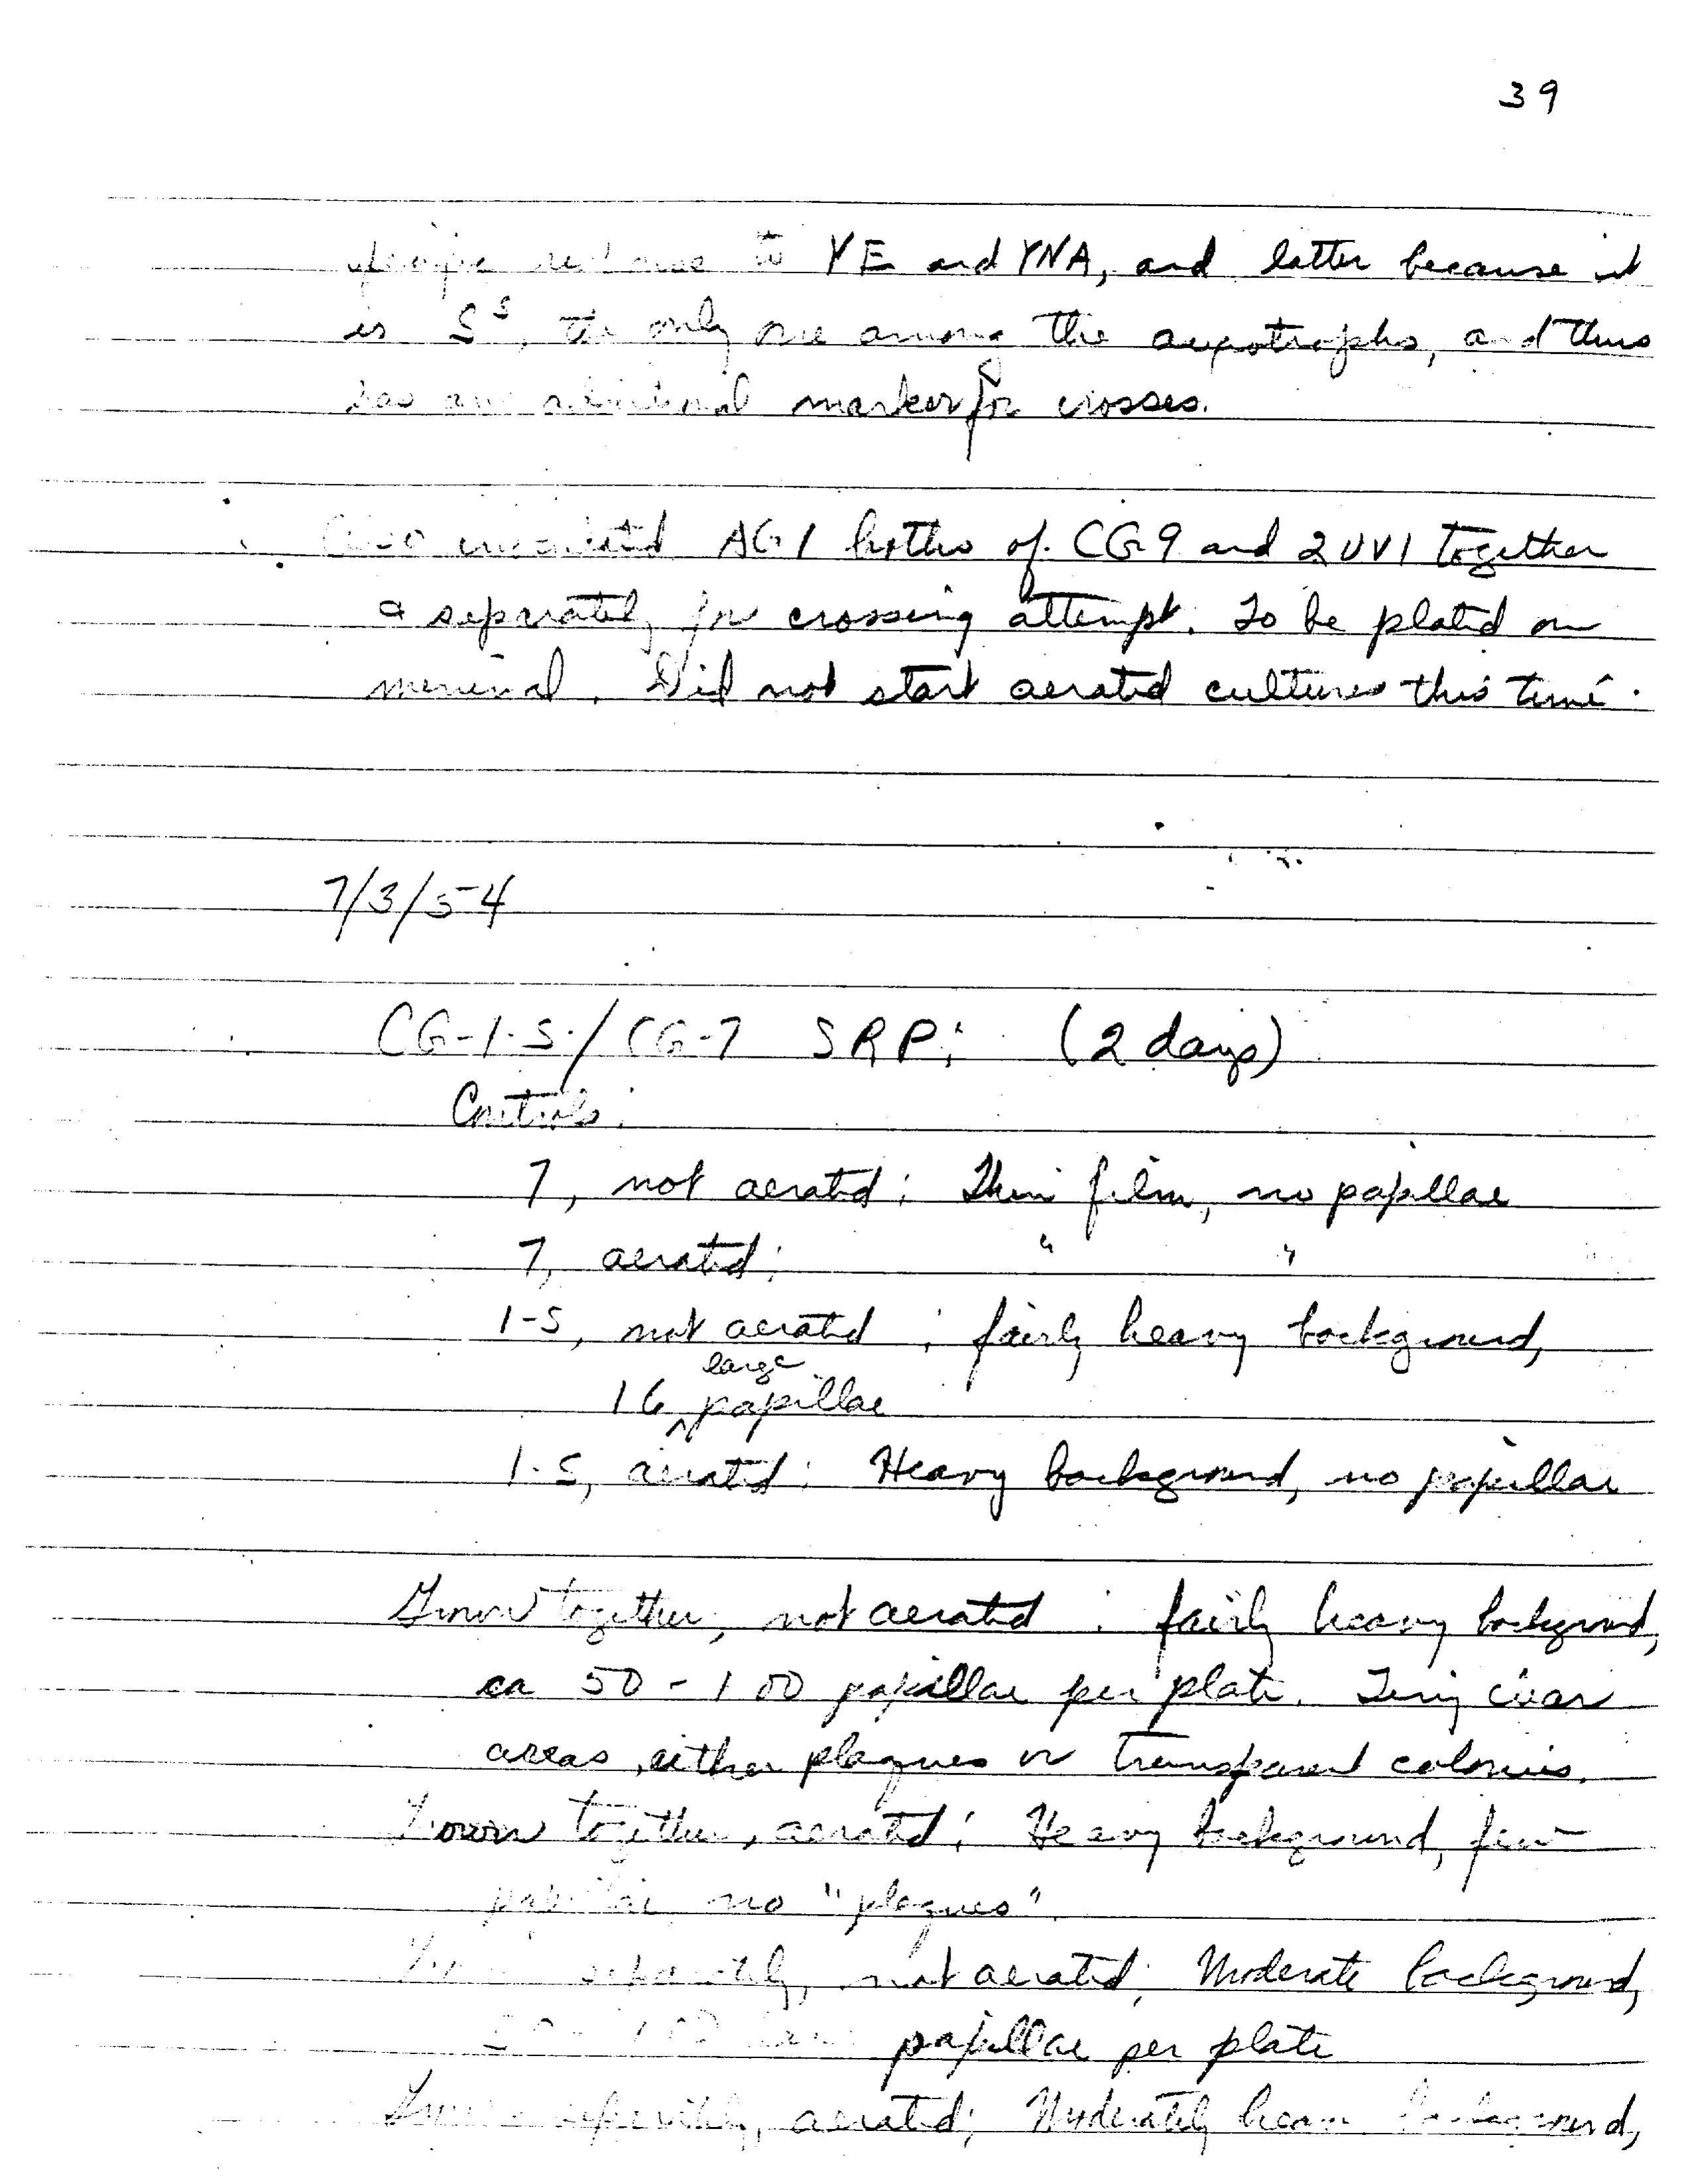 39
to YE and YNA, and latter because it
is S^s, the only one among the auxotrophs, and thus
has an additional marker for crosses.
Also inoculated AG1 broths of CG9 and 2UV1 together
& separately for crossing attempt. To be plated on
minimal. Did not start aerated cultures this time.
7/3/54
CG-1-S/CG-7 SRP: (2 days)
Controls:
7, not aerated: Thin film, no papillae
7, aerated: " "
1-S, not aerated; fairly heavy background,
large
16 ^ papillae
1-S, aerated: Heavy background, no papillae
Grown together, not aerated: fairly heavy background,
ca 50-100 papillae per plate. Tiny clear
areas, either plaques or transparent colonies.
Grown together, aerated: Heavy background, few
papillae no "plaques".
Grown separately, not aerated; Moderate background,
50-100 papillae per plate
Grown separately, aerated; Moderately heavy background,